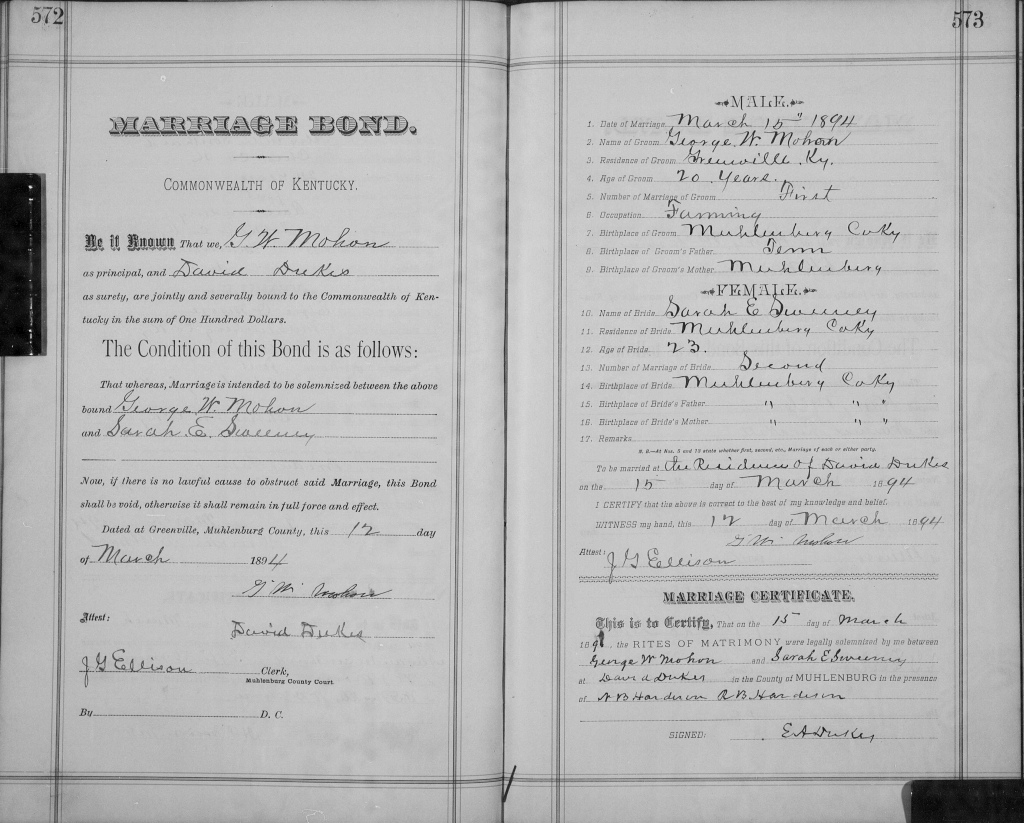 572
MARRIAGE BOND.
COMMONWEALTH OF KENTUCKY.
Be it Known, That we, G. W. Mohon
as principal, and David Dukes
as surety, are jointly and severally bound to the Commonwealth of Ken-
tucky in the sum of One Hundred Dollars.
The Condition of this Bond is as follows:
That whereas, Marriage is intended to be solemnized between the above
bound George W. Mohon
and Sarah. E. Sweeney
Now, if there is no lawful cause to obstruct said Marriage, this Bond
shall be void, otherwise it shall remain in full force and effect.
Dated at Greenville, Muhlenburg County, this 12 day
of March 1894
G W Mohon
Attest:
David Dukes
J G Ellison Clerk,
Muhlenburg County Court.
By D. C.
573
MALE.
1. Date of Marriage March 15" 1894
2. Name of Groom George. W. Mohon
3. Residence of Groom Greenville. Ky.
4. Age of Groom 20. Years.
5. Number of Marriage of Groom First
6. Occupation Farming
7. Birthplace of Groom Muhlenberg Co Ky
8. Birthplace of Groom's Father Tenn
9. Birthplace of Groom's Mother Muhlenberg
FEMALE.
10. Name of Bride Sarah E Sweeney
11. Residence of Bride Muhlenberg Co Ky
12. Age of Bride 23.
13. Number of Marriage of Bride Second
14. Birthplace of Bride Muhlenberg Co Ky
15. Birthplace of Bride's Father " " "
16. Birthplace of Bride's Mother " " "
17. Remarks
N. B.—At Nos. 5 and 13 state whether first, second, etc., Marriage of each or either party.
To be married at the Residence of David Dukes
on the 15 day of March 1894
I CERTIFY that the above is correct to the best of my knowledge and belief.
WITNESS my hand, this 12 day of March 1894
G W Mohon
Attest:
J G Ellison
MARRIAGE CERTIFICATE.
This is to Certify, That on the 15 day of March
189 , the RITES OF MATRIMONY were legally solemnized by me between
George W Mohon and Sarah E Sweeney
at David Dukes in the County of MUHLENBURG in the presence
of N B Hardison R B Hardison
SIGNED: E A Dukes